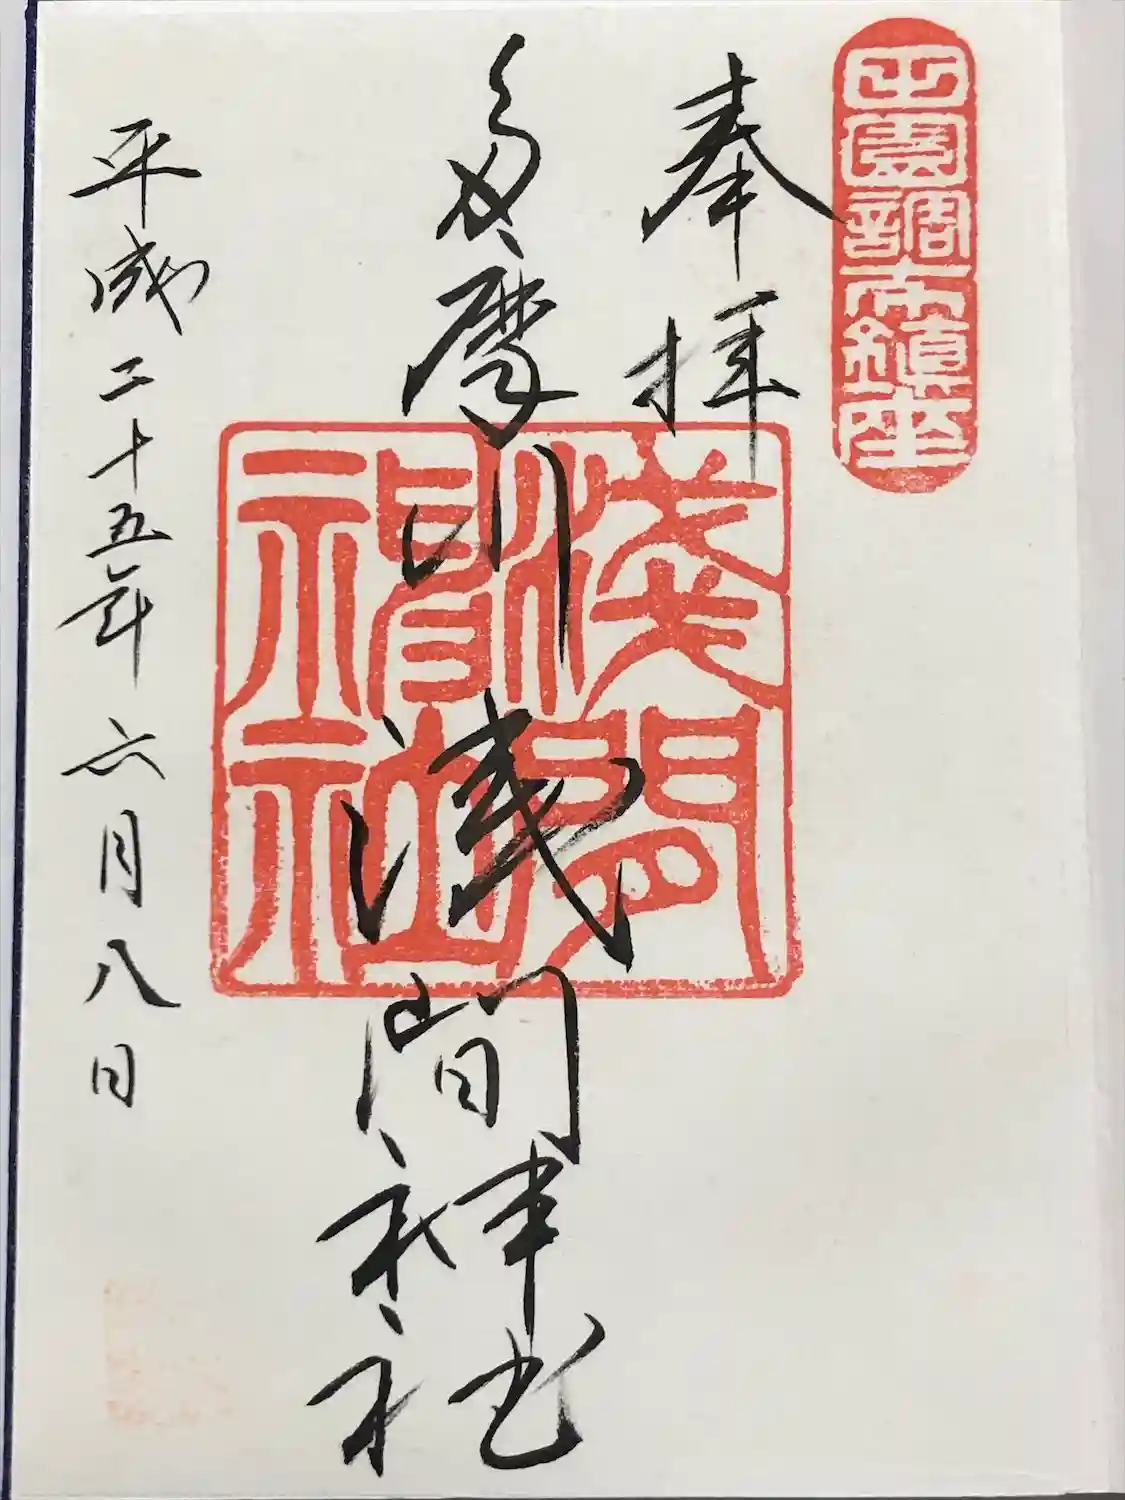 田園調布鎮座
奉拝
多摩川浅間神社
浅間神社
平成二十五年六月八日